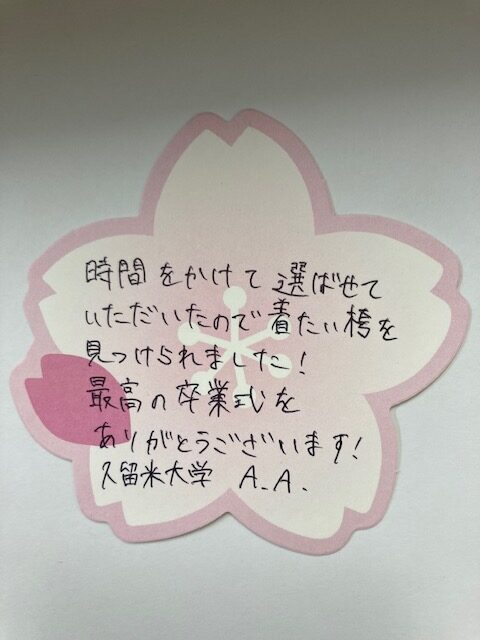 時間をかけて選ばせて
いただいたので着たい袴を
見つけられました!
最高の卒業式を
ありがとうございます!
久留米大学 A.A.